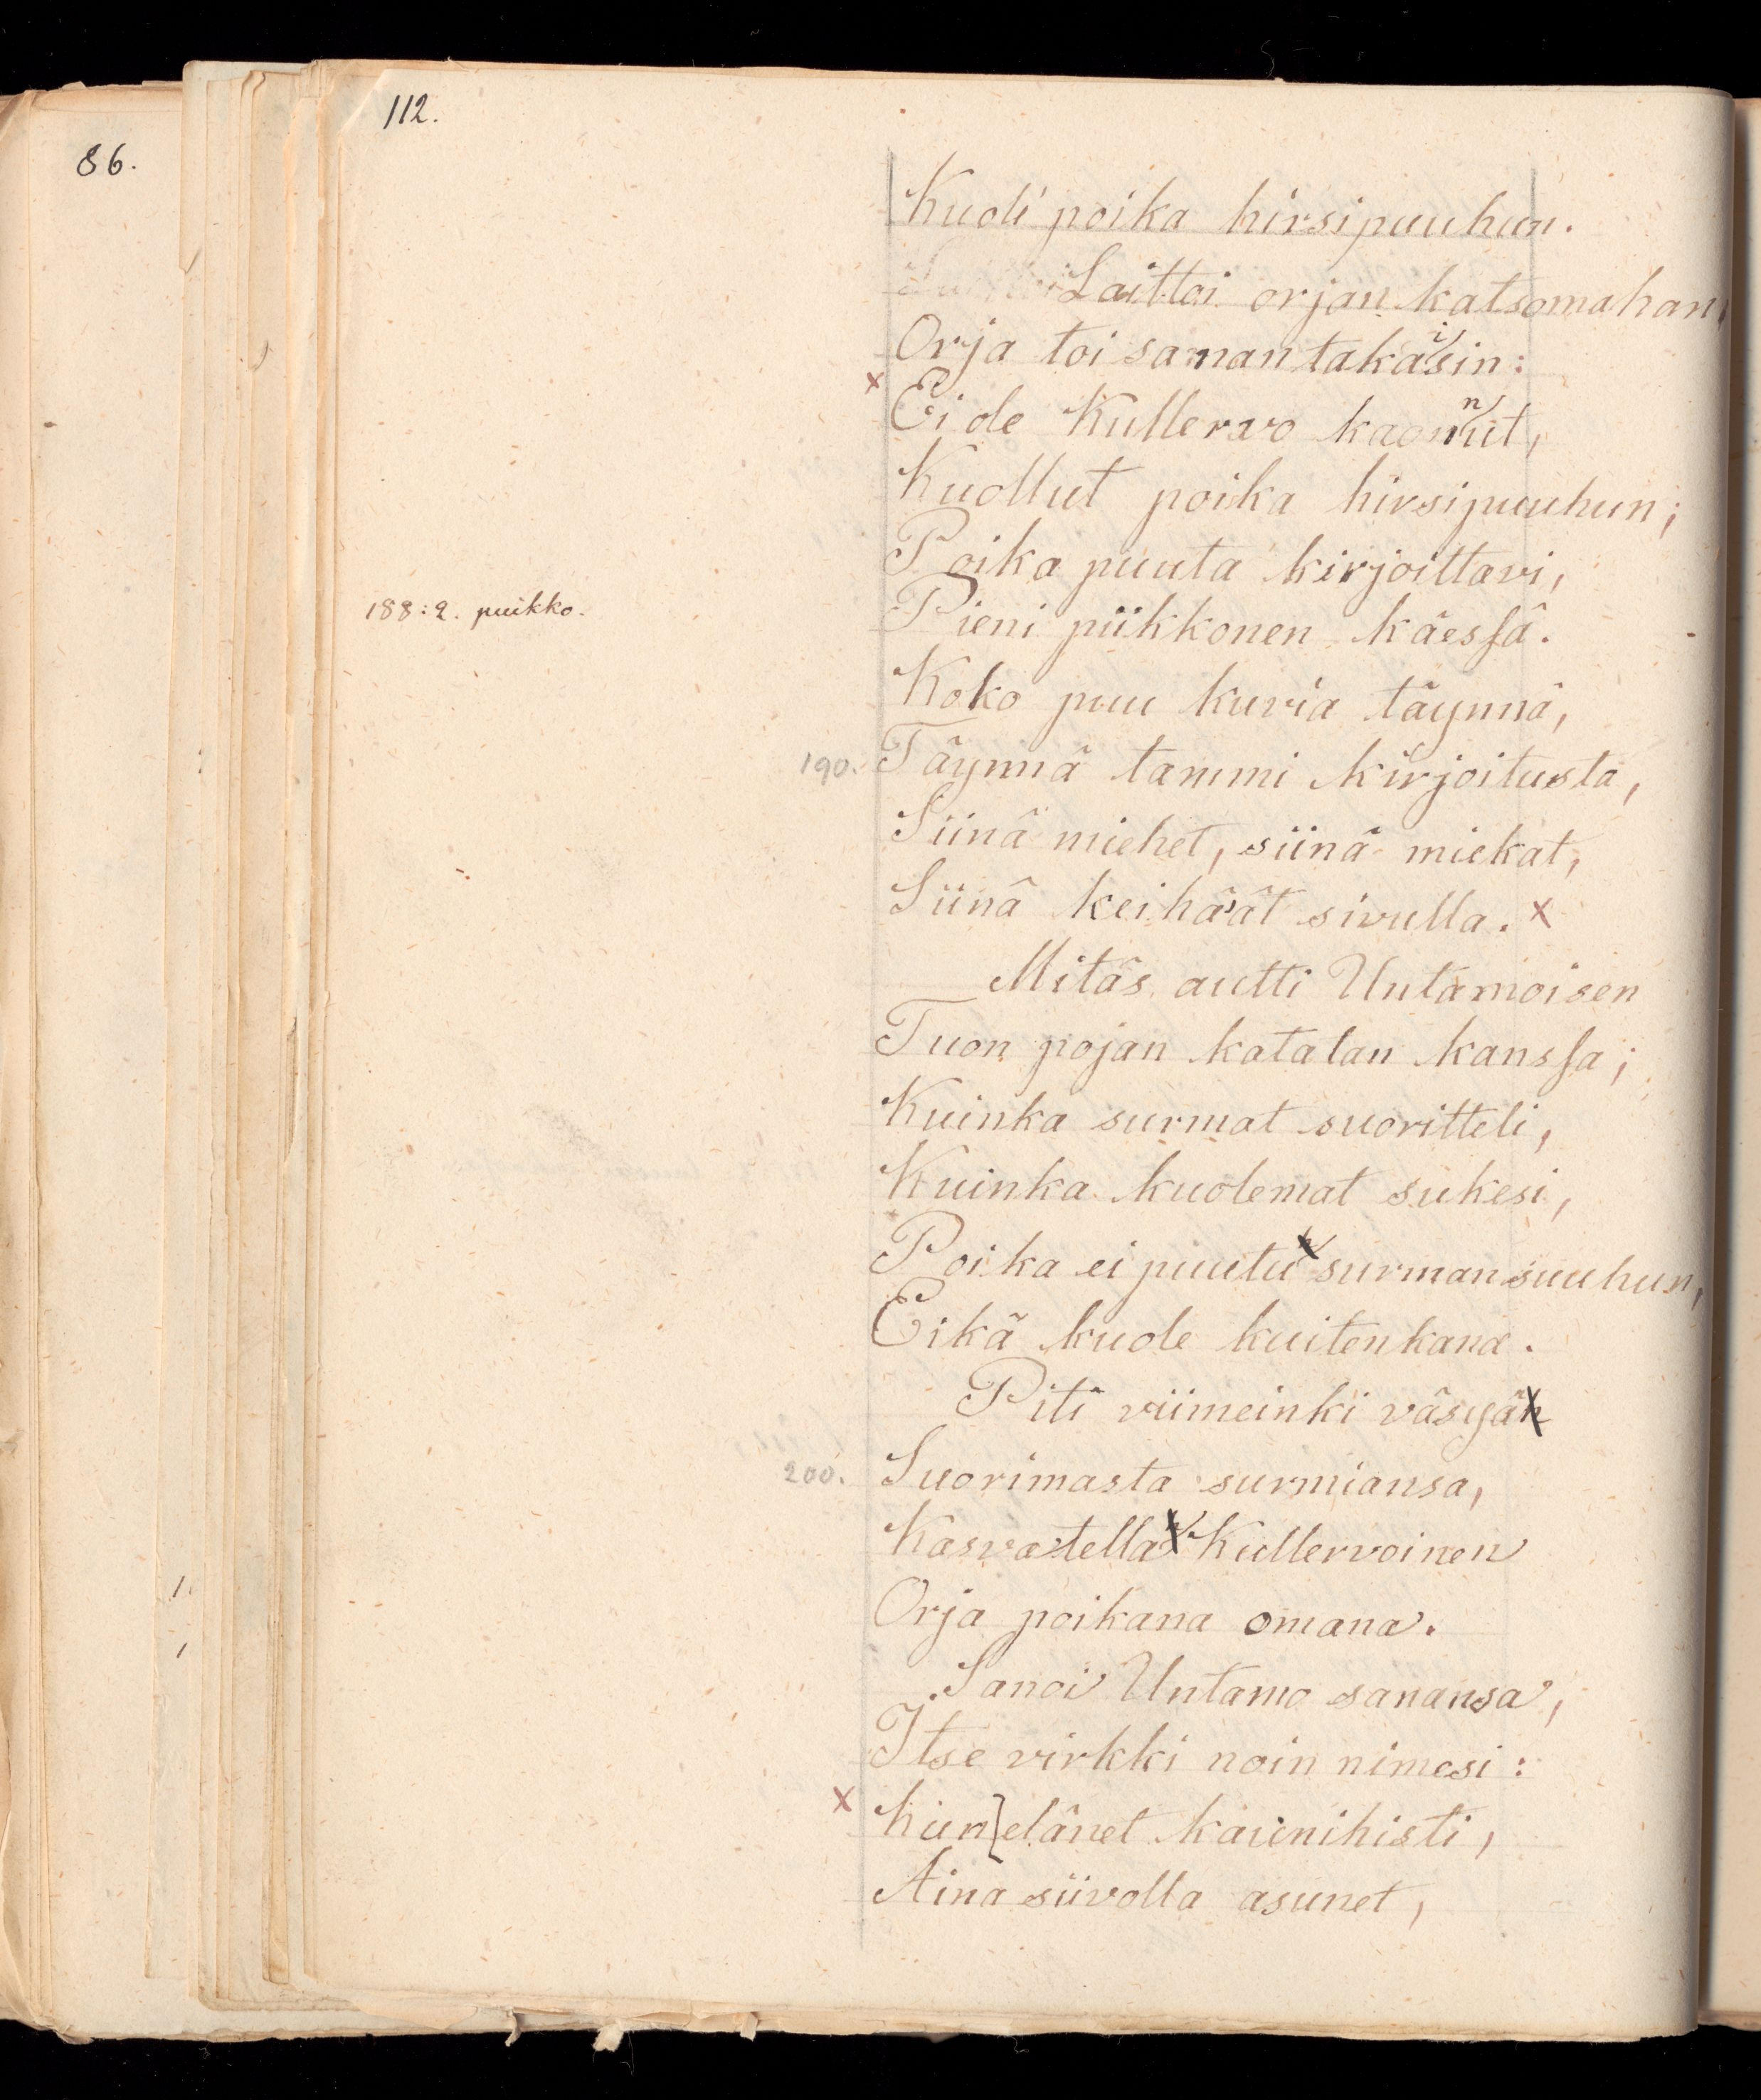 112.
86.
Kuoli poika hirsipuuhun.
Laittoi orjan katsomahan,
Orja toi sanan takaisin:
x
Ei ole Kullervo kaonnut,
Kuollut poika hirsipuuhun;
Poika puuta kirjoittavi,
188:2. puikko.
Pieni piikkonen käessä.
Koko puu kuvia täynnä,
190. Täynnä tammi kirjoitusta,
Siinä miehet, siinä miekat,
Siinä keihäät sivulla. x
Mitäs autti Untamoisen
Tuon pojan katalan kanssa;
Kuinka surmat suoritteli,
Kuinka kuolemat sukesi,
Poika ei puutu surman suuhun,
Eikä kuole kuitenkana.
Piti viimeinki väsyä
200. Suorimasta surmiansa,
Kasvatella Kullervoinen
Orja poikana omana.
Sanoi Untamo sanansa,
Itse virkki noin nimesi:
x kun] elänet kaunihisti,
Aina siivolla asunet,